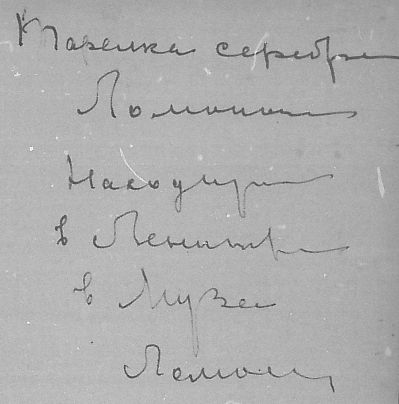 Тарелка серебр
Ломонос
Находится
в Ленингр
в Музее
Ломонос